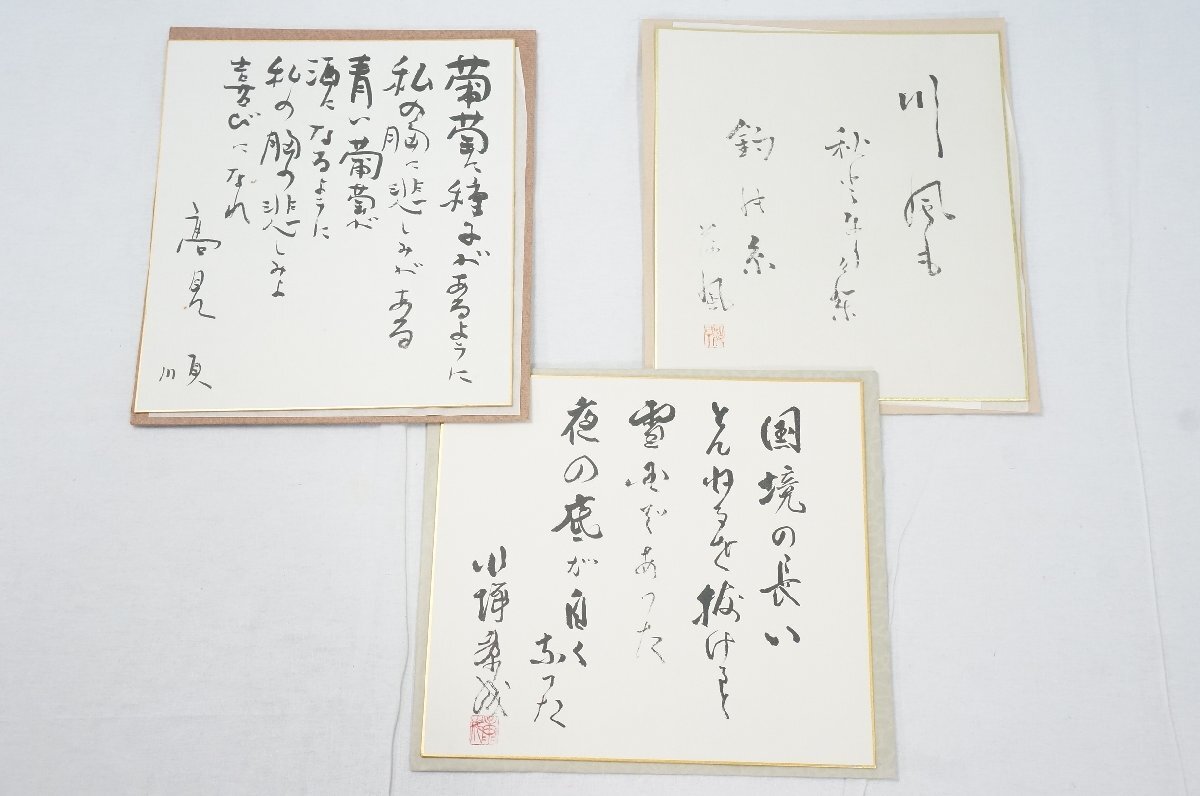 葡萄に種子があるように
私の胸に悲しみがある
青い葡萄が
酒になるように
私の胸の悲しみよ
喜びになれ
高見順
川風も
秋となりけり
釣の糸
荷風
国境の長い
とんねるを抜けると
雪国であった
夜の底が白く
なった
川端康成